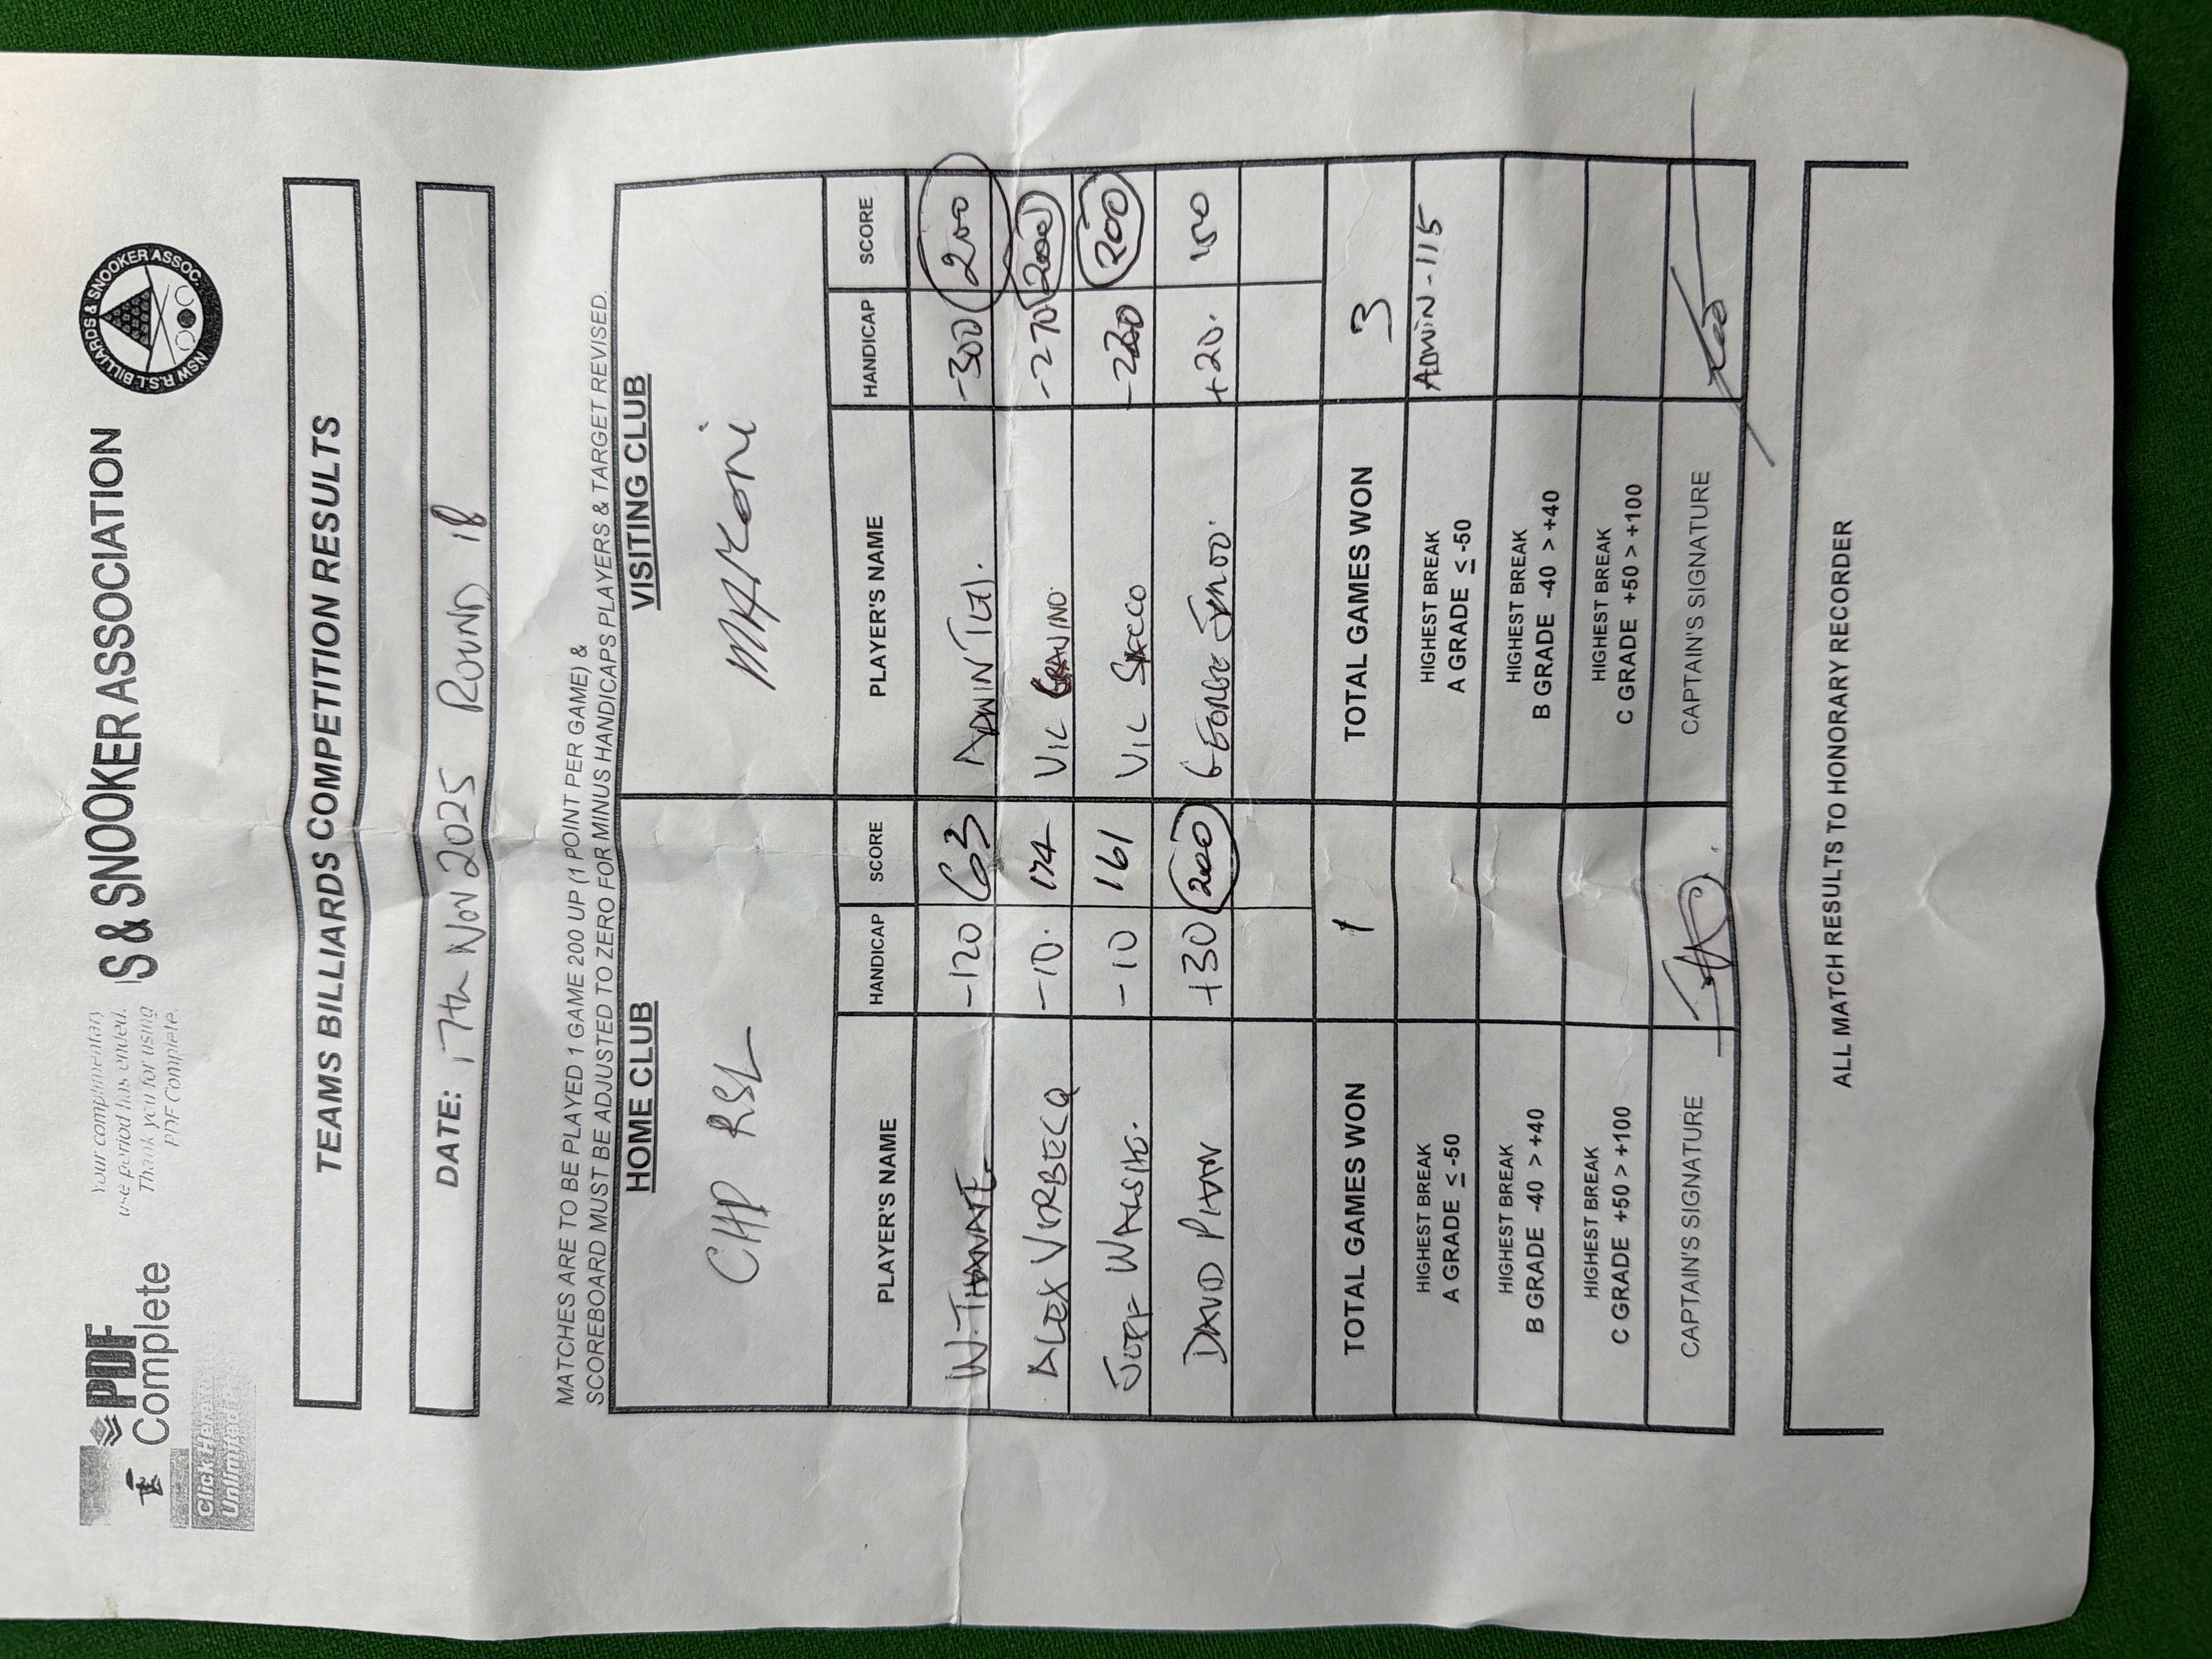 PDF Complete
Your complimentary
use period has ended.
Thank you for using
PDF Complete.
Click Here
Unlimited
S & SNOOKER ASSOCIATION
NSW R.S.L BILLIARDS & SNOOKER ASSOC.
TEAMS BILLIARDS COMPETITION RESULTS
DATE: 17th Nov 2025 Round 18
MATCHES ARE TO BE PLAYED 1 GAME 200 UP (1 POINT PER GAME) &
SCOREBOARD MUST BE ADJUSTED TO ZERO FOR MINUS HANDICAPS PLAYERS & TARGET REVISED.
HOME CLUB VISITING CLUB
CHP RSL MARKONI
PLAYER'S NAME HANDICAP SCORE PLAYER'S NAME HANDICAP SCORE
W. -120 63 -300 200
ALEX VERBECQ -10. 174 VIC -270 200
JEFF WALSHE. -10 161 VIC SACCO 200
DAVID PHAN +30 200 GEORGE +20. 150
TOTAL GAMES WON 1 TOTAL GAMES WON 3
HIGHEST BREAK
A GRADE ≤ -50
HIGHEST BREAK
A GRADE ≤ -50
ADWIN - 115
HIGHEST BREAK
B GRADE -40 > +40
HIGHEST BREAK
B GRADE -40 > +40
HIGHEST BREAK
C GRADE +50 > +100
HIGHEST BREAK
C GRADE +50 > +100
CAPTAIN'S SIGNATURE CAPTAIN'S SIGNATURE
ALL MATCH RESULTS TO HONORARY RECORDER